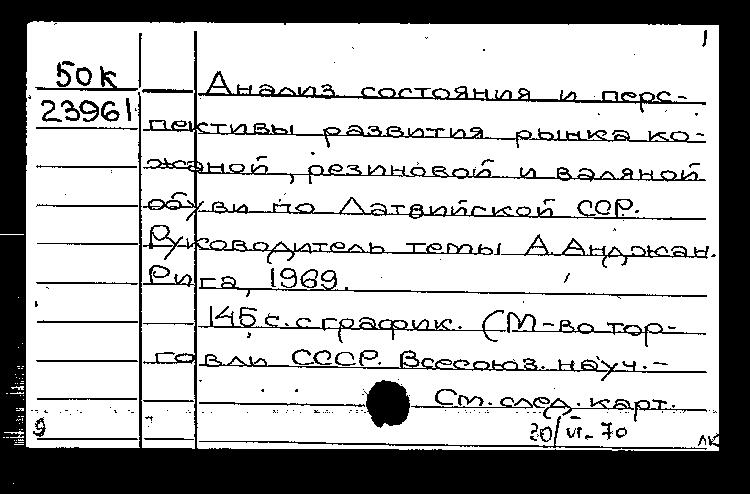 1
50к
23961
Анализ состояния и перс-
пективы развития рынка ко-
жаной, резиновой и валяной
обуви по Латвийской ССР.
Руководитель темы А. Анджан.
Рига, 1969.
145 с. с график. (М-во тор-
говли СССР. Всесоюз. науч.-
См. след. карт.
9
20/VI-70
ЛК